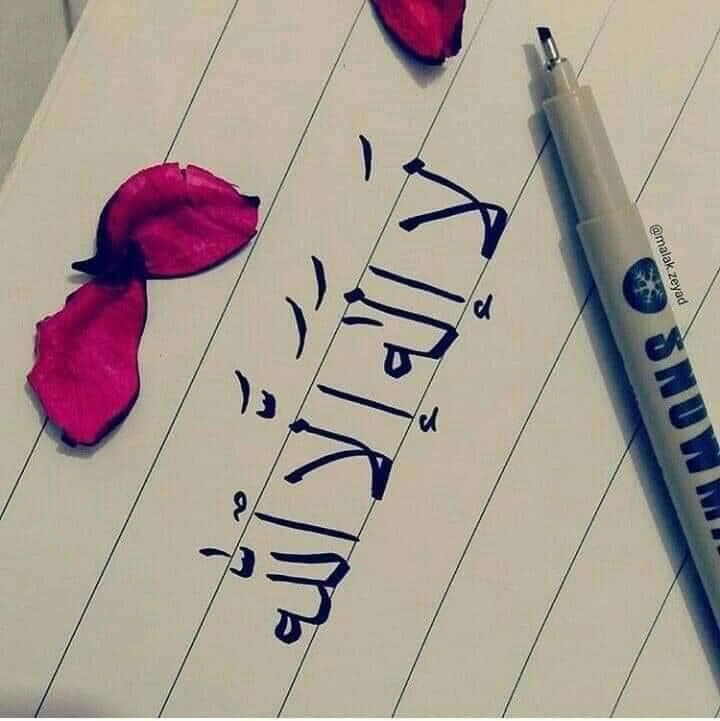 لَا إِلَٰهَ إِلَّا اللّٰه
@malak.zeyad
SNOWM